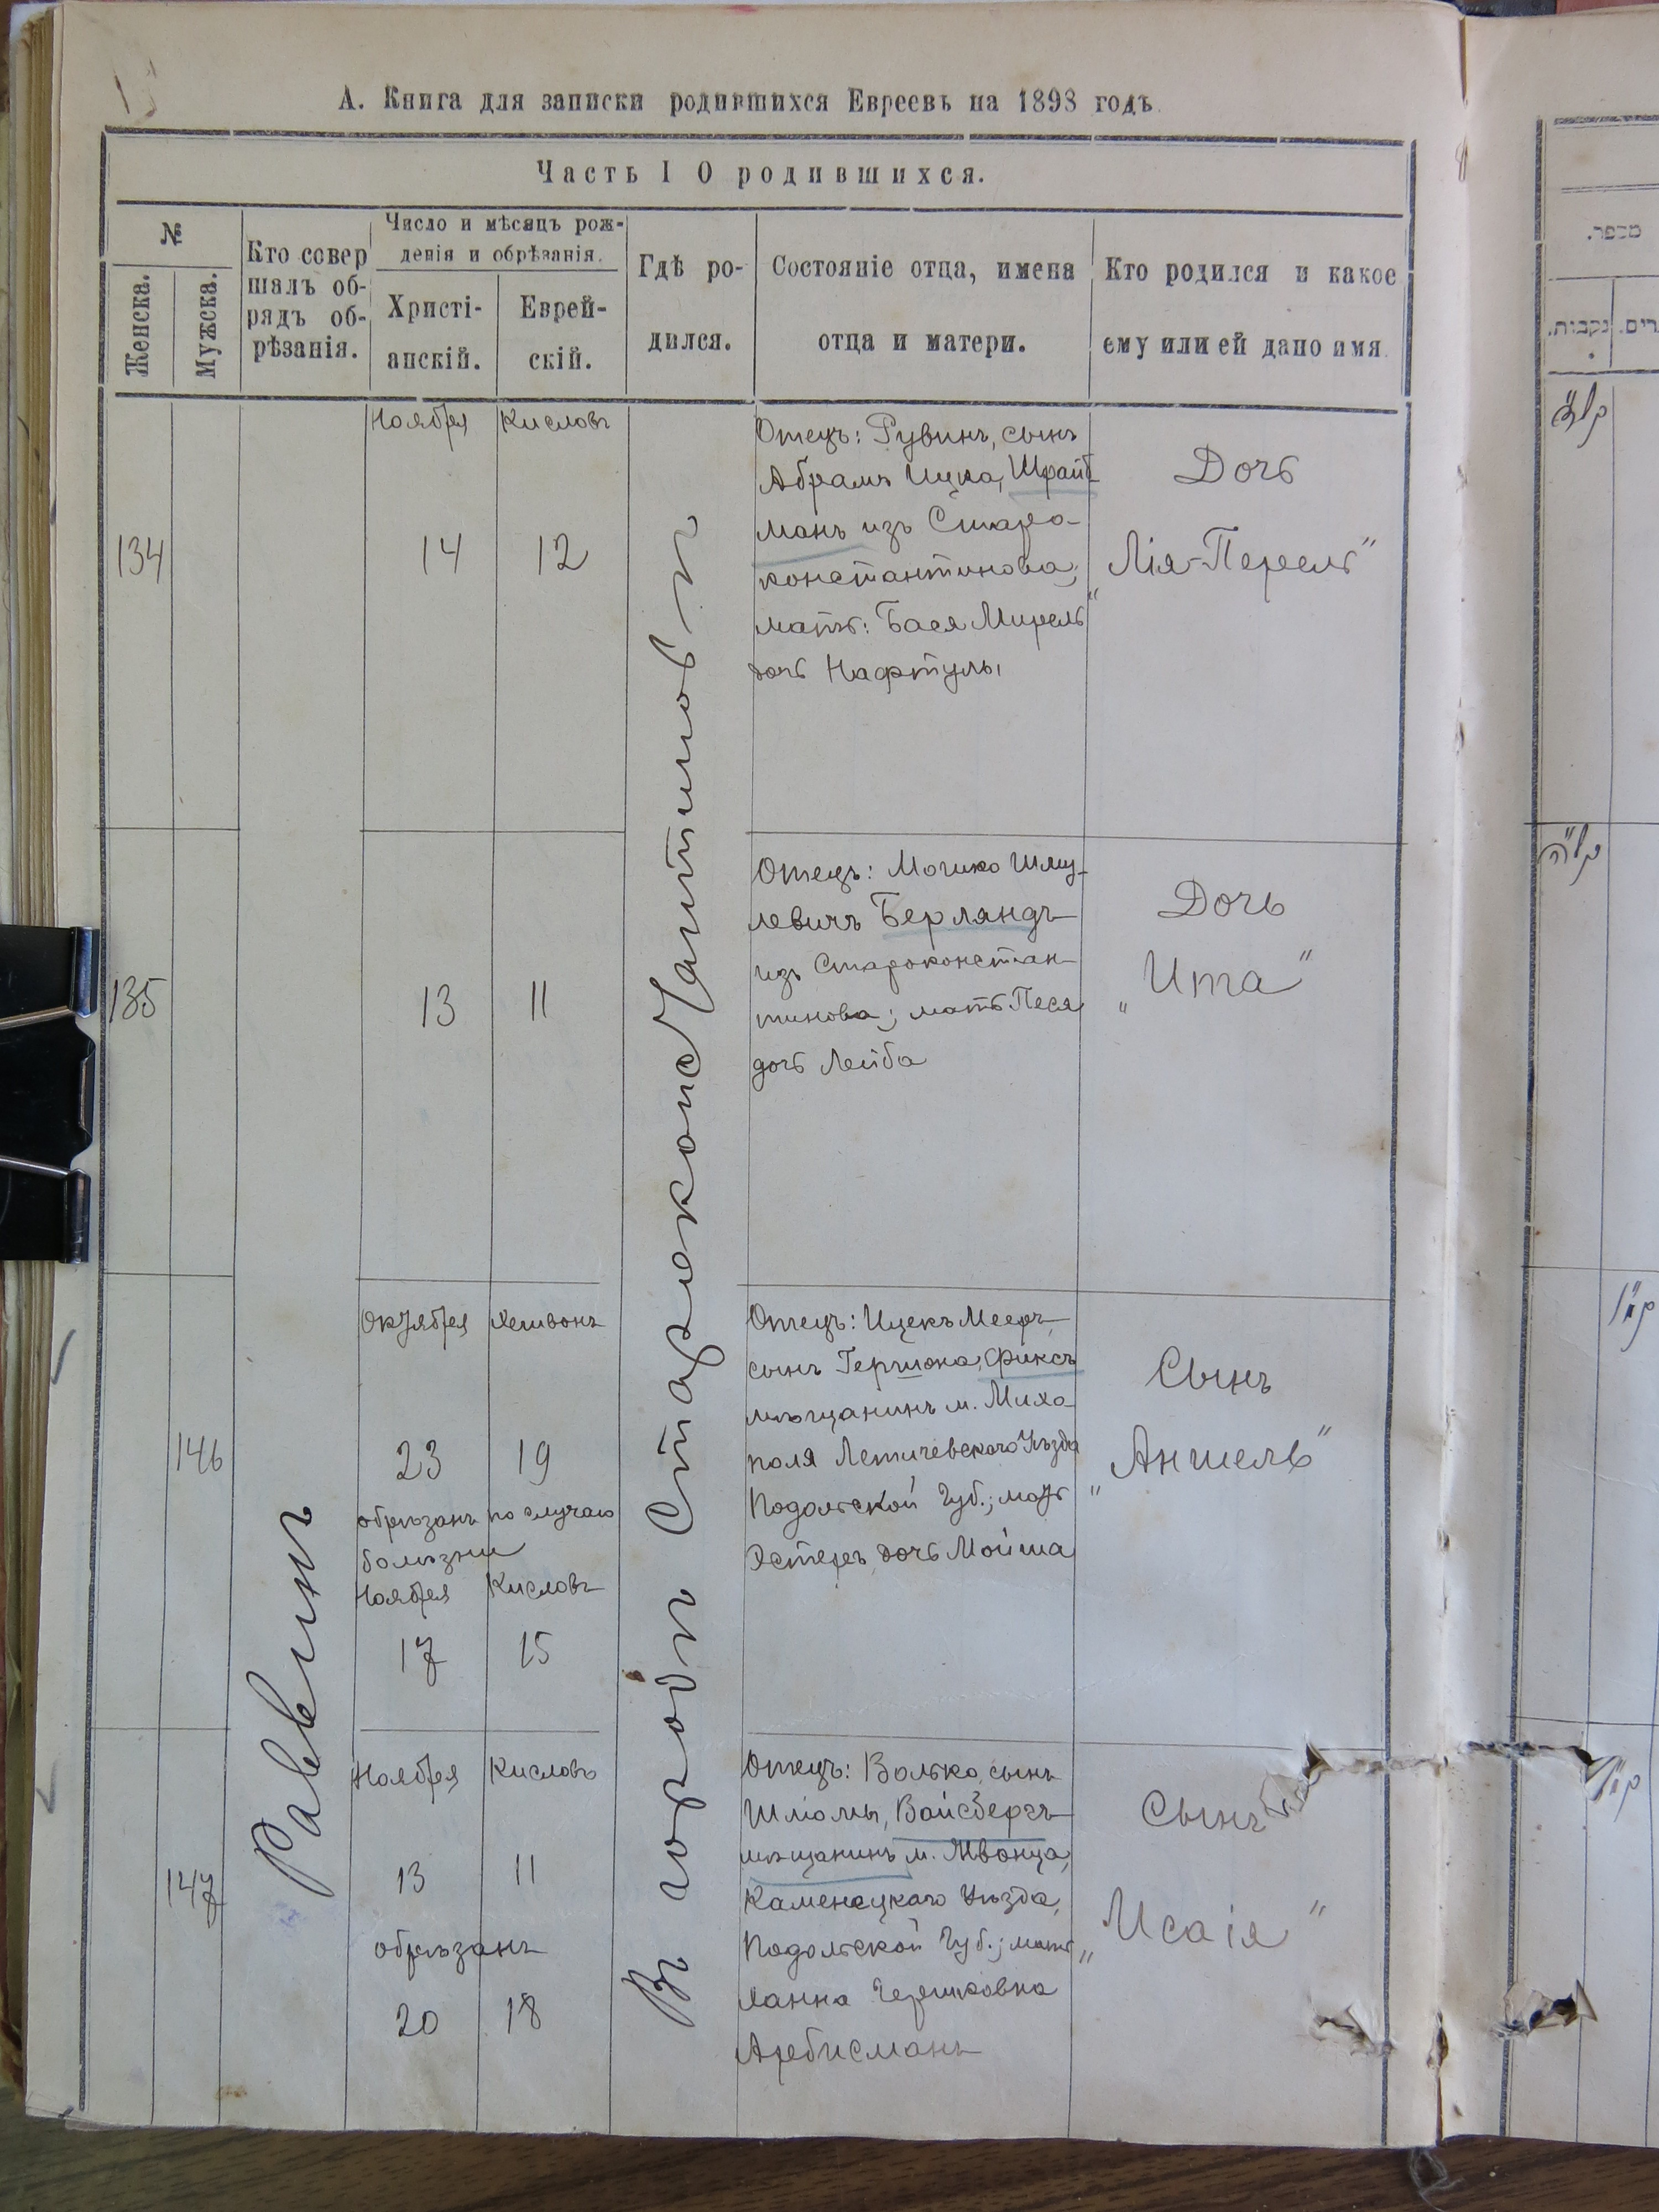 А. Книга для записки родившихся Евреевъ на 1898 годъ.
Часть I О родившихся.
№
Женска.
Мужска.
Кто совер
шалъ об-
рядъ об-
рѣзанія.
Число и мѣсяцъ рож-
денія и обрѣзанія.
Христі-
анскій.
Еврей-
скій.
Гдѣ ро-
дился.
Состояніе отца, имена
отца и матери.
Кто родился и какое
ему или ей дано имя.
מספר.
נקבות.
Раввинъ
Въ городѣ Староконстантиновѣ
134
Ноября Кисловъ
14 12
Отецъ: Рувинъ, сынъ
Абрамъ Ицка, Шрайб-
манъ изъ Старо-
константинова;
мать: Бася Мирель
дочь Нафтулы
Дочь
„Лія-Перель"
135
13 11
Отецъ: Мошко Шму-
левичъ Берляндъ
изъ Староконстан-
тинова; мать Песя
дочь Лейба
Дочь
„Ита"
146
Октября Хешвонъ
23 19
обрѣзанъ по случаю
болѣзни
Ноября Кисловъ
17 15
Отецъ: Ицекъ Мееръ,
сынъ Гершона, Фиксъ
мѣщанинъ м. Миха-
поля Летичевскаго Уѣзда
Подольской Губ.; мать
Эстеръ, дочь Мойша
Сынъ
„Аншель"
147
Ноября Кисловъ
13 11
обрѣзанъ
20 18
Отецъ: Волько, сынъ
Шліомы, Вайсбергъ
мѣщанинъ м. Жванца,
Каменецкаго Уѣзда,
Подольской Губ.; мать
Ханна Гершковна
Аребисманъ
Сынъ
„Исаія"
קל״ד
קל״ה
קמ״ו